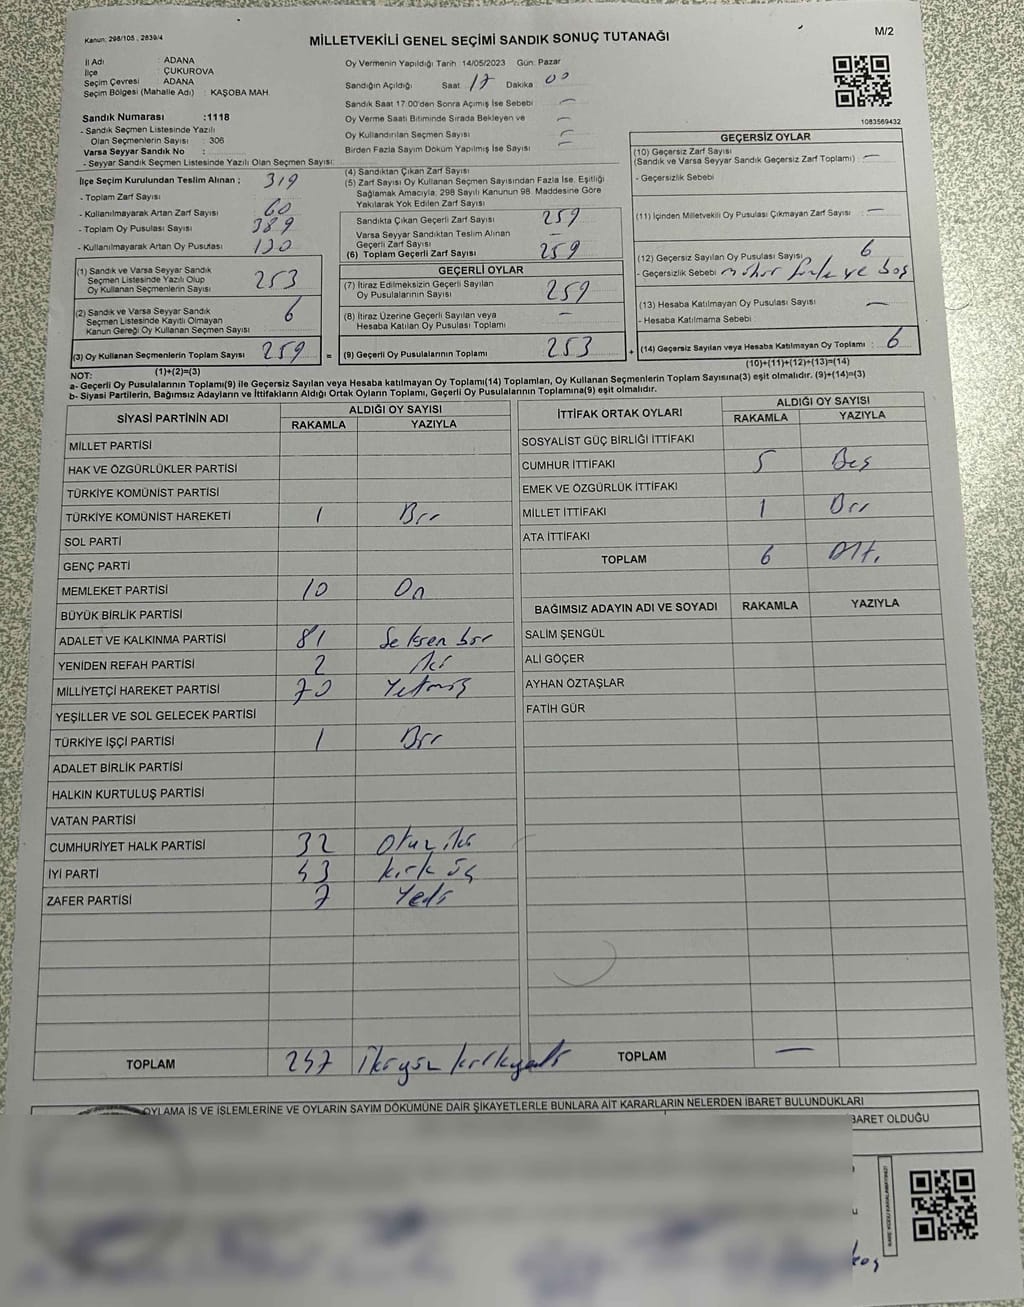 Kanun: 298/105 , 2839/4
M/2
MİLLETVEKİLİ GENEL SEÇİMİ SANDIK SONUÇ TUTANAĞI
İl Adı : ADANA
İlçe : ÇUKUROVA
Seçim Çevresi : ADANA
Seçim Bölgesi (Mahalle Adı) : KAŞOBA MAH.
Sandık Numarası :1118
- Sandık Seçmen Listesinde Yazılı
Olan Seçmenlerin Sayısı : 306
Varsa Seyyar Sandık No :
- Seyyar Sandık Seçmen Listesinde Yazılı Olan Seçmen Sayısı:
Oy Vermenin Yapıldığı Tarih 14/05/2023 Gün: Pazar
Sandığın Açıldığı Saat 17 Dakika 00
Sandık Saat 17:00'den Sonra Açımış İse Sebebi —
Oy Verme Saati Bitiminde Sırada Bekleyen ve
Oy Kullandırılan Seçmen Sayısı —
Birden Fazla Sayım Döküm Yapılmış İse Sayısı —
1083569432
İlçe Seçim Kurulundan Teslim Alınan ;
- Toplam Zarf Sayısı 319
- Kullanılmayarak Artan Zarf Sayısı 60
- Toplam Oy Pusulası Sayısı 389
- Kullanılmayarak Artan Oy Pusulası 130
(1) Sandık ve Varsa Seyyar Sandık
Seçmen Listesinde Yazılı Olup
Oy Kullanan Seçmenlerin Sayısı 253
(2) Sandık ve Varsa Seyyar Sandık
Seçmen Listesinde Kayıtlı Olmayan
Kanun Gereği Oy Kullanan Seçmen Sayısı 6
(3) Oy Kullanan Seçmenlerin Toplam Sayısı 259 =
(1)+(2)=(3)
(4) Sandıktan Çıkan Zarf Sayısı
(5) Zarf Sayısı Oy Kullanan Seçmen Sayısından Fazla İse, Eşitliği
Sağlamak Amacıyla, 298 Sayılı Kanunun 98. Maddesine Göre
Yakılarak Yok Edilen Zarf Sayısı
Sandıkta Çıkan Geçerli Zarf Sayısı 259
Varsa Seyyar Sandıktan Teslim Alınan
Geçerli Zarf Sayısı —
(6) Toplam Geçerli Zarf Sayısı 259
GEÇERLİ OYLAR
(7) İtiraz Edilmeksizin Geçerli Sayılan
Oy Pusulalarının Sayısı 259
(8) İtiraz Üzerine Geçerli Sayılan veya
Hesaba Katılan Oy Pusulası Toplamı —
(9) Geçerli Oy Pusulalarının Toplamı 253 +
GEÇERSİZ OYLAR
(10) Geçersiz Zarf Sayısı
(Sandık ve Varsa Seyyar Sandık Geçersiz Zarf Toplamı) : —
- Geçersizlik Sebebi
(11) İçinden Milletvekili Oy Pusulası Çıkmayan Zarf Sayısı : —
(12) Geçersiz Sayılan Oy Pusulası Sayısı 6
- Geçersizlik Sebebi mühür fazla ve boş
(13) Hesaba Katılmayan Oy Pusulası Sayısı —
- Hesaba Katılmama Sebebi
(14) Geçersiz Sayılan veya Hesaba Katılmayan Oy Toplamı : 6
(10)+(11)+(12)+(13)=(14)
NOT:
a- Geçerli Oy Pusulalarının Toplamı(9) ile Geçersiz Sayılan veya Hesaba katılmayan Oy Toplamı(14) Toplamları, Oy Kullanan Seçmenlerin Toplam Sayısına(3) eşit olmalıdır. (9)+(14)=(3)
b- Siyasi Partilerin, Bağımsız Adayların ve İttifakların Aldığı Ortak Oyların Toplamı, Geçerli Oy Pusulalarının Toplamına(9) eşit olmalıdır.
SİYASİ PARTİNİN ADI ALDIĞI OY SAYISI
RAKAMLA YAZIYLA
MİLLET PARTİSİ
HAK VE ÖZGÜRLÜKLER PARTİSİ
TÜRKİYE KOMÜNİST PARTİSİ
TÜRKİYE KOMÜNİST HAREKETİ 1 Bir
SOL PARTİ
GENÇ PARTİ
MEMLEKET PARTİSİ 10 On
BÜYÜK BİRLİK PARTİSİ
ADALET VE KALKINMA PARTİSİ 81 Seksen bir
YENİDEN REFAH PARTİSİ 2 İki
MİLLİYETÇİ HAREKET PARTİSİ 70 Yetmiş
YEŞİLLER VE SOL GELECEK PARTİSİ
TÜRKİYE İŞÇİ PARTİSİ 1 Bir
ADALET BİRLİK PARTİSİ
HALKIN KURTULUŞ PARTİSİ
VATAN PARTİSİ
CUMHURİYET HALK PARTİSİ 32 Otuz iki
İYİ PARTİ 43 kırk üç
ZAFER PARTİSİ 7 Yedi
TOPLAM 247 İkiyüz kırkyedi
İTTİFAK ORTAK OYLARI ALDIĞI OY SAYISI
RAKAMLA YAZIYLA
SOSYALİST GÜÇ BİRLİĞİ İTTİFAKI
CUMHUR İTTİFAKI 5 Beş
EMEK VE ÖZGÜRLÜK İTTİFAKI
MİLLET İTTİFAKI 1 Bir
ATA İTTİFAKI
TOPLAM 6 Altı
BAĞIMSIZ ADAYIN ADI VE SOYADI RAKAMLA YAZIYLA
SALİM ŞENGÜL
ALİ GÖÇER
AYHAN ÖZTAŞLAR
FATİH GÜR
TOPLAM —
OYLAMA İŞ VE İŞLEMLERİNE VE OYLARIN SAYIM DÖKÜMÜNE DAİR ŞİKAYETLERLE BUNLARA AİT KARARLARIN NELERDEN İBARET BULUNDUKLARI
BARET OLDUĞU